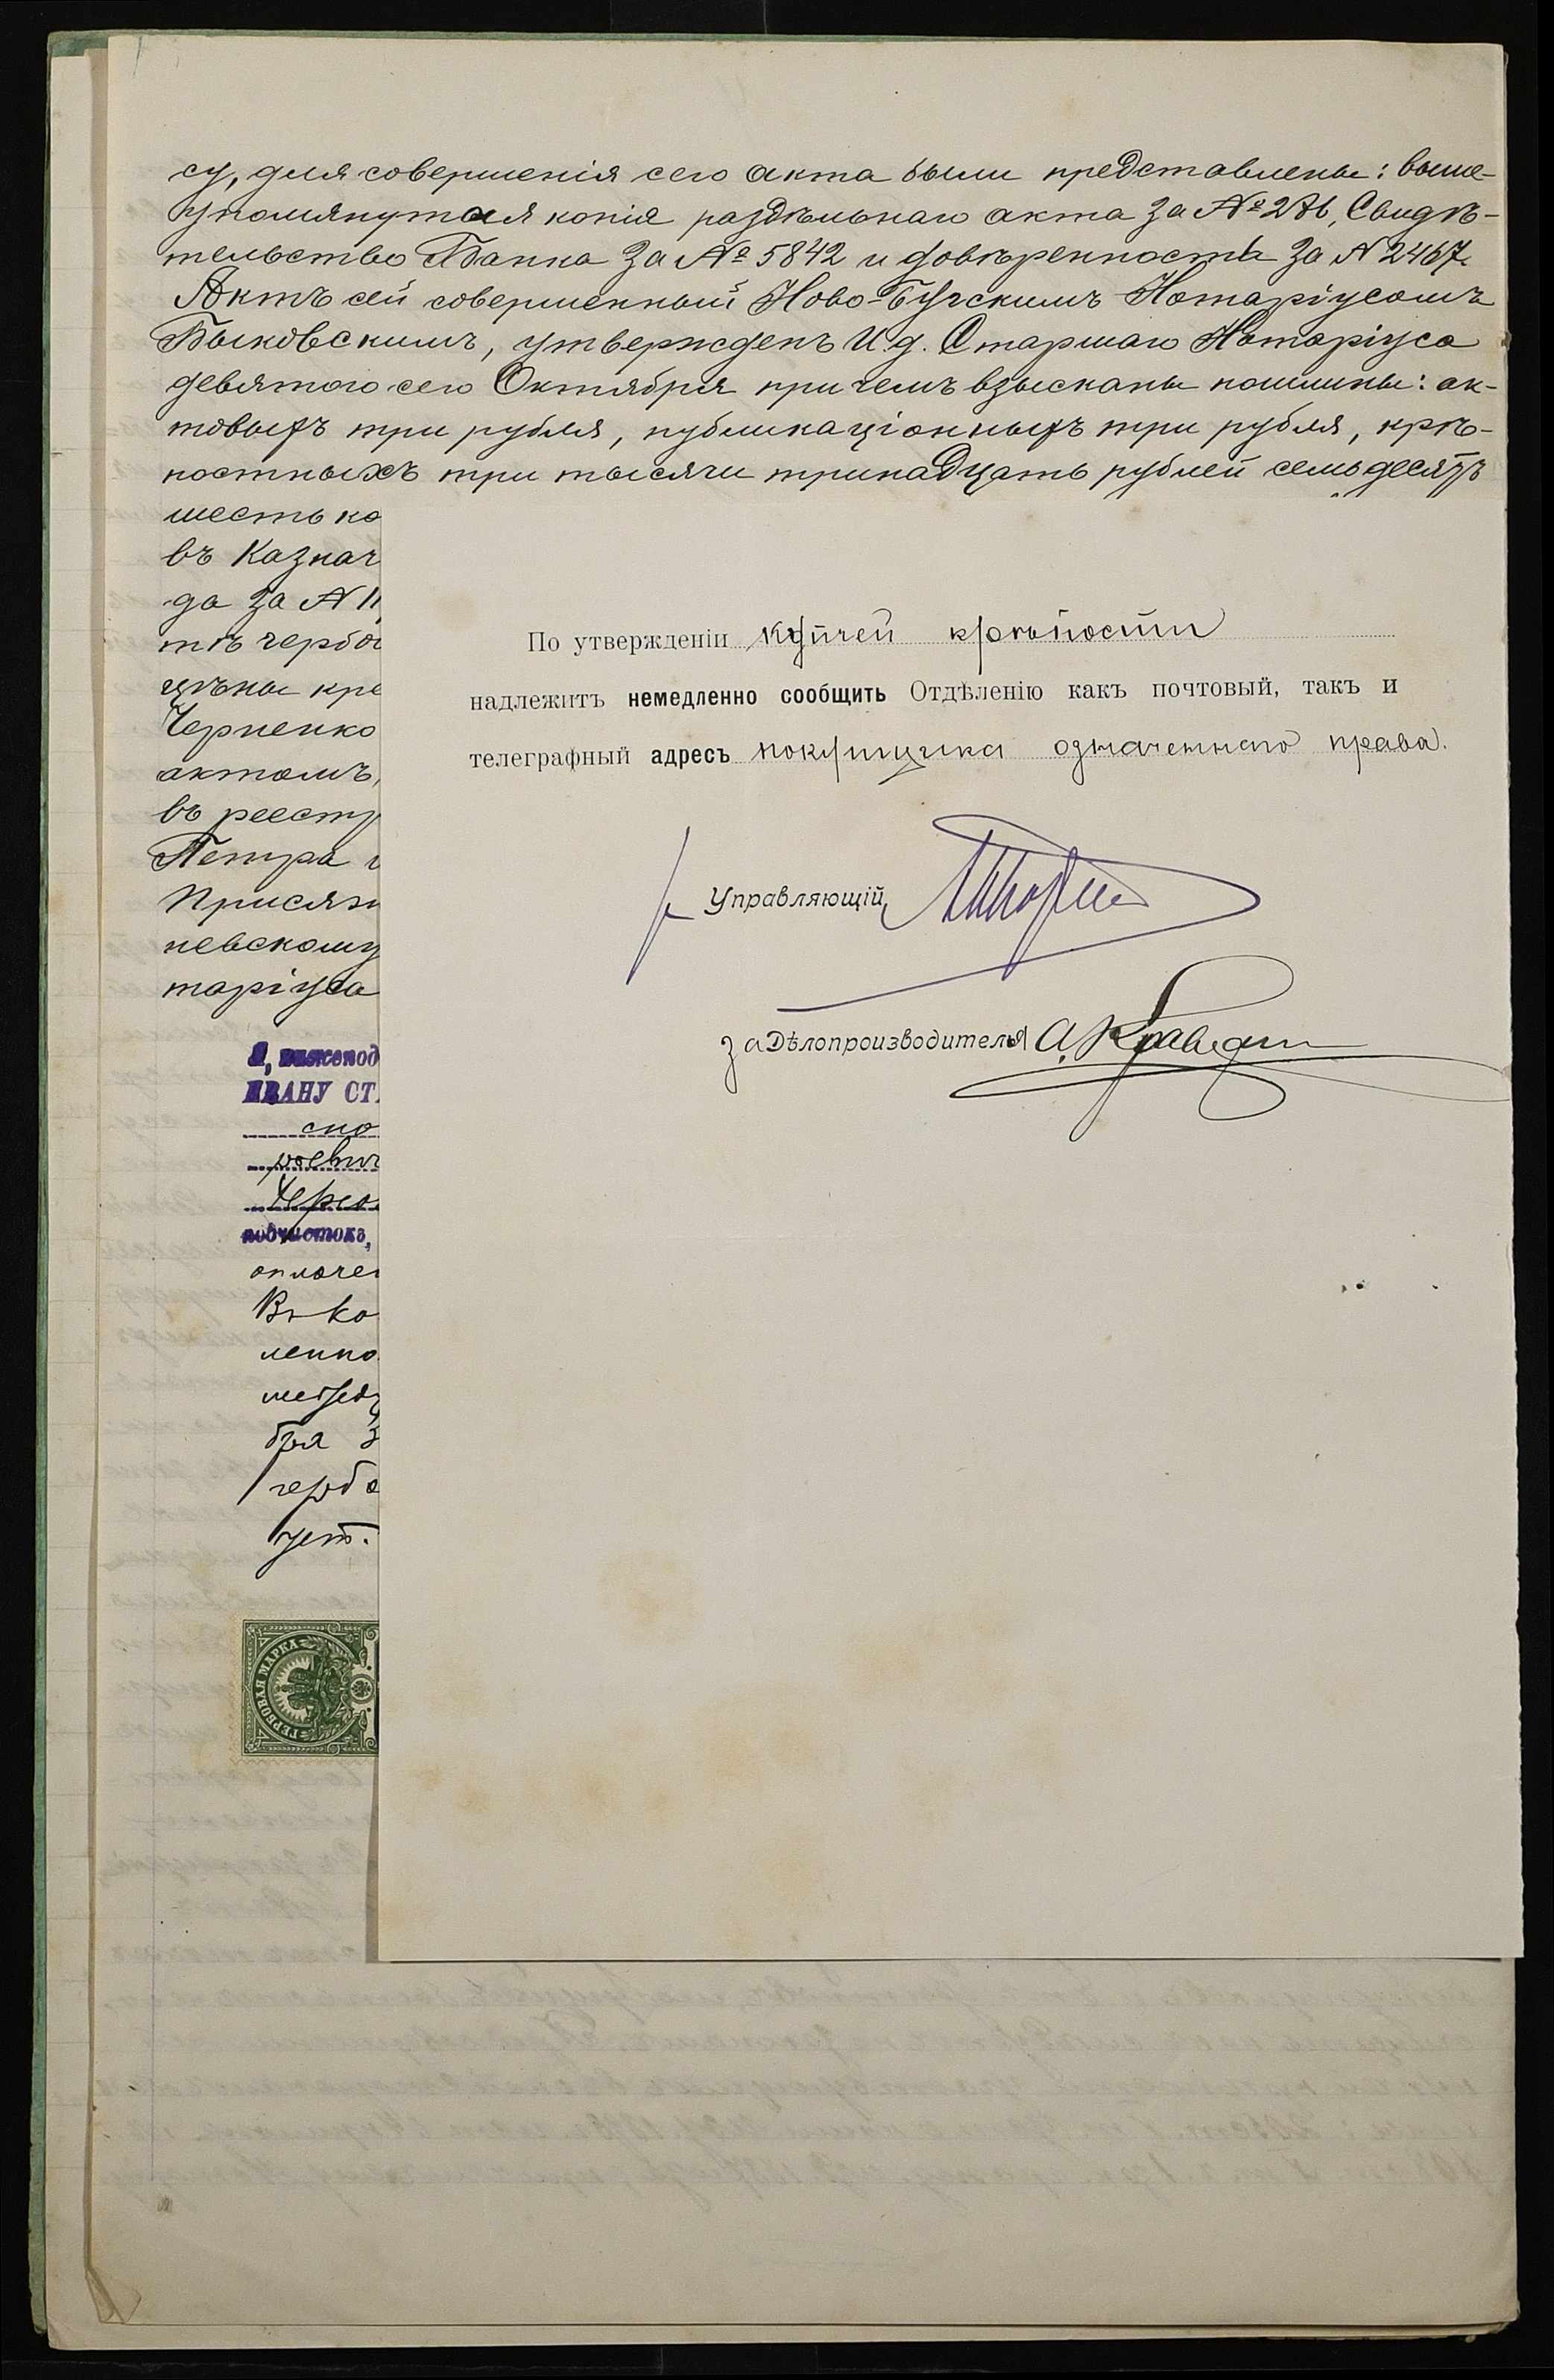 су, для совершенія сего акта были представлены: выше-
упомянутая копія раздѣльнаго акта за № 286, Свидѣ-
тельство Банка за № 5842 и довѣренность за № 2467.
Актъ сей совершенный Ново-Бугскимъ Нотаріусомъ
Быковскимъ, утвержденъ И.д. Старшаго Нотаріуса
девятого сего Октября при чемъ взысканы пошлины: ак-
товыхъ три рубля, публикаціонныхъ три рубля, крѣ-
постныхъ три тысячи тринадцать рублей семьдесятъ
шесть ко
въ Казнач
да за № 11
тѣ гербо
цѣны кре
Черненко
актомъ,
въ реестр
Петра
Присяж
невскому
таріуса
Я, нижепод
ИВАНУ СТ.
ско
роевич
Херсо
подчистокъ,
оплачен
Въ ко
ленно
между
бря з
герба
уст.
ГЕРБОВАЯ МАРКА
По утвержденіи купчей крѣпости
надлежитъ немедленно сообщить Отдѣленію какъ почтовый, такъ и
телеграфный адресъ покупщика означеннаго права.
Управляющій
за Дѣлопроизводителя А. Кравец